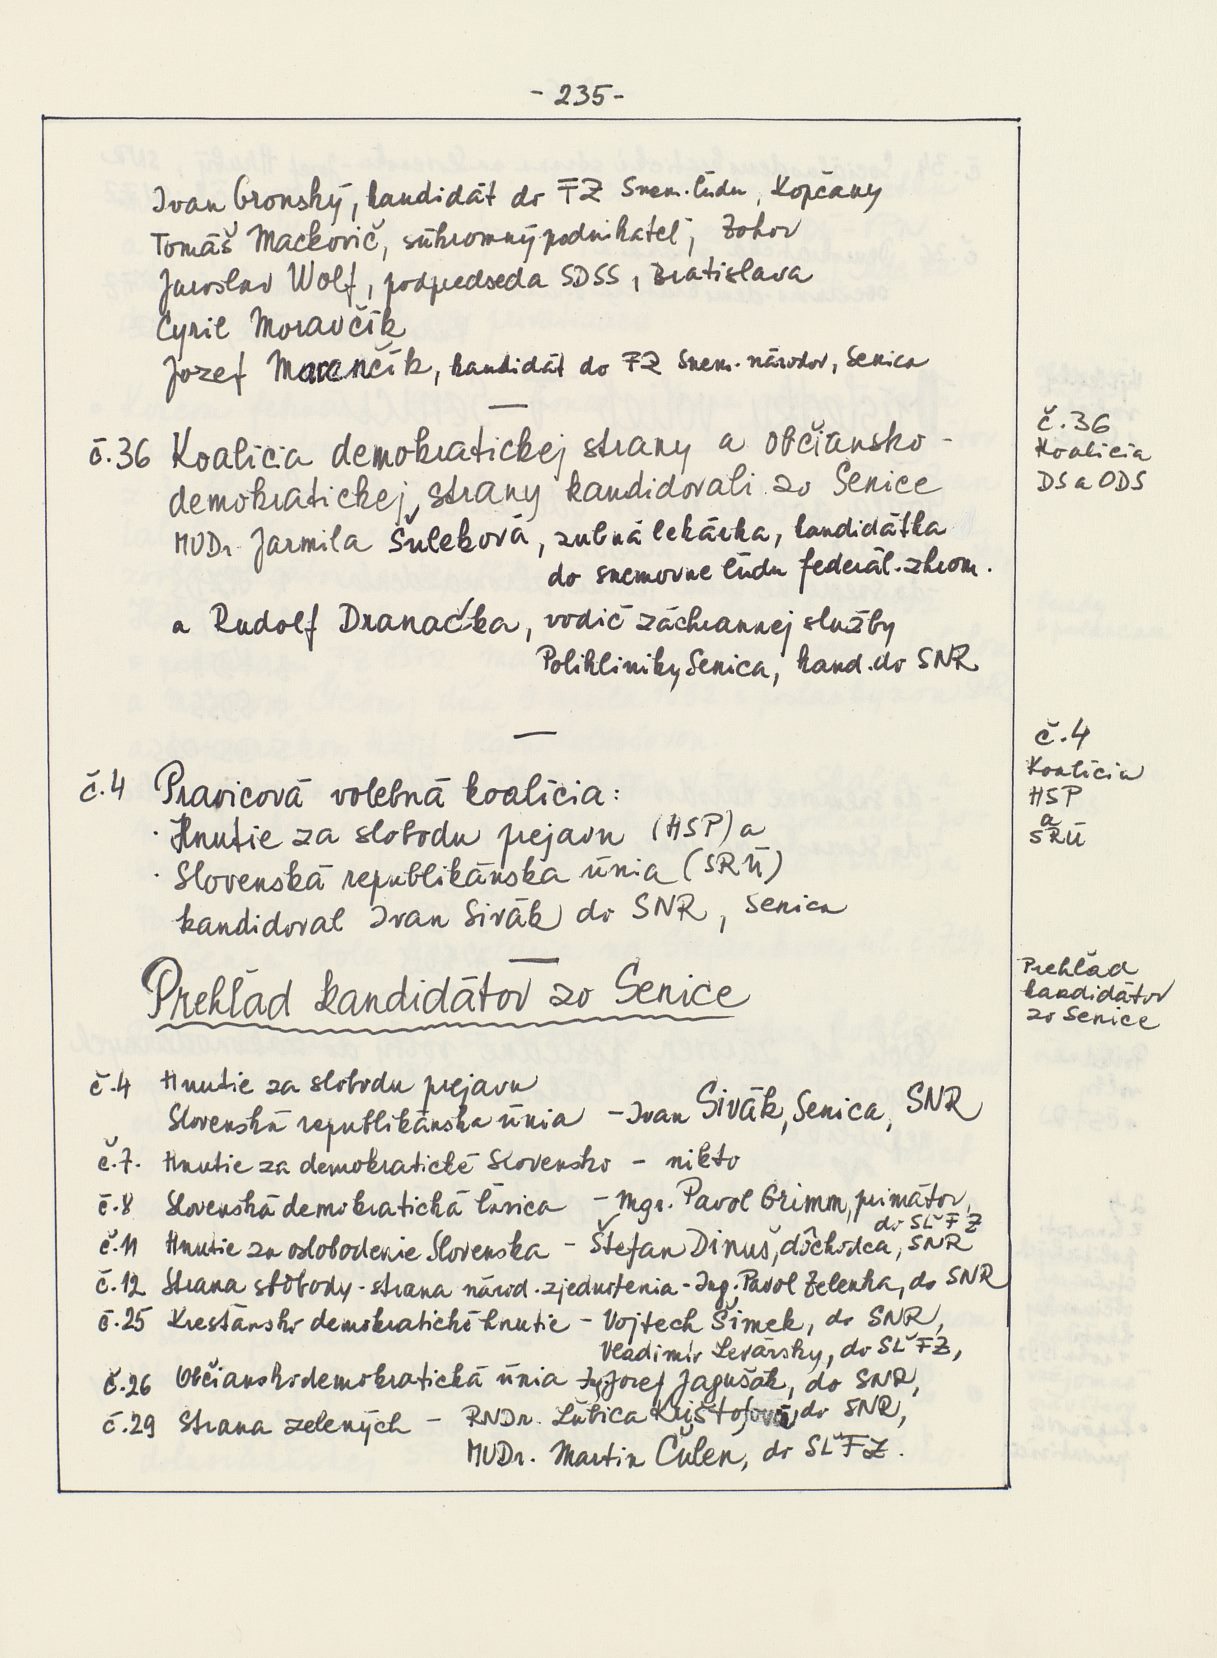 - 235 -
Ivan Gronský, kandidát do FZ Snem. ľudu, Kopčany
Tomáš Mackovič, súkromný podnikateľ, Zohor
Jaroslav Wolf, podpredseda SDSS, Bratislava
Cyril Moravčík
Jozef Marančík, kandidát do FZ Snem. národov, Senica
č.36 Koalícia demokratickej strany a občiansko-
demokratickej strany kandidovali zo Senice
MUDr. Jarmila Šuleková, zubná lekárka, kandidátka
do snemovne ľudu federál. zhrom.
a Rudolf Dranačka, vodič záchrannej služby
Polikliniky Senica, kand. do SNR
č.36
Koalícia
DS a ODS
č.4 Pravicová volebná koalícia:
· Hnutie za slobodu prejavu (HSP) a
· Slovenská republikánska únia (SRÚ)
kandidoval Ivan Sivák do SNR, Senica
č.4
Koalícia
HSP
a
SRÚ
Prehľad kandidátov zo Senice
Prehľad
kandidátov
zo Senice
č.4 Hnutie za slobodu prejavu
Slovenská republikánska únia - Ivan Sivák, Senica, SNR
č.7. Hnutie za demokratické Slovensko - nikto
č.8 Slovenská demokratická ľavica - Mgr. Pavol Grimm, primátor,
do SĽ FZ
č.11 Hnutie za oslobodenie Slovenska - Štefan Dinuš, dôchodca, SNR
č.12 Strana slobody - strana národ. zjednotenia - Ing. Pavol Zelenka, do SNR
č.25 Kresťansko demokratické hnutie - Vojtech Šimek, do SNR,
Vladimír Levársky, do SĽ FZ,
č.26 Občianskodemokratická únia Jozef Jagušák, do SNR,
č.29 Strana zelených - RNDr. Ľubica Krištofová, do SNR,
MUDr. Martin Čulen, do SĽ FZ.